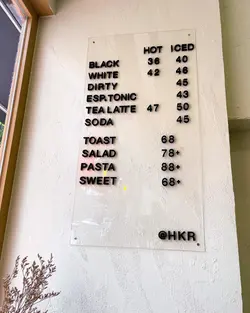 HOT ICED
BLACK 36 40
WHITE 42 46
DIRTY 45
ESP.TONIC 43
TEA LATTE 47 50
SODA 45
TOAST 68
SALAD 78+
PASTA 88+
SWEET 68+
@HKR